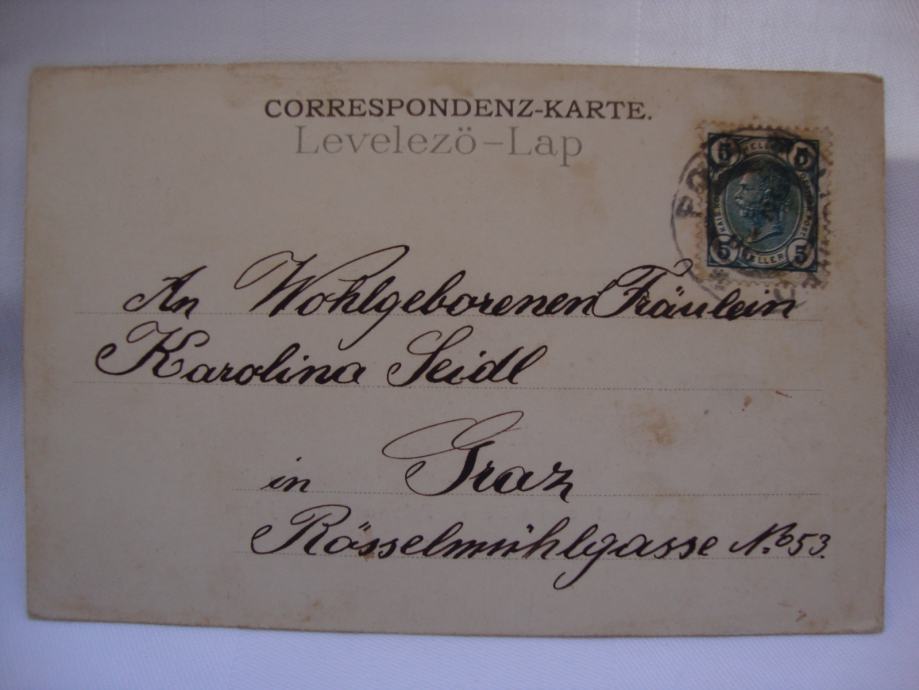 CORRESPONDENZ-KARTE.
Levelező-Lap
5 5
5 HELLER 5
An Wohlgeborenen Fräulein
Karolina Seidl
in Graz
Rösselmühlgasse No 53.